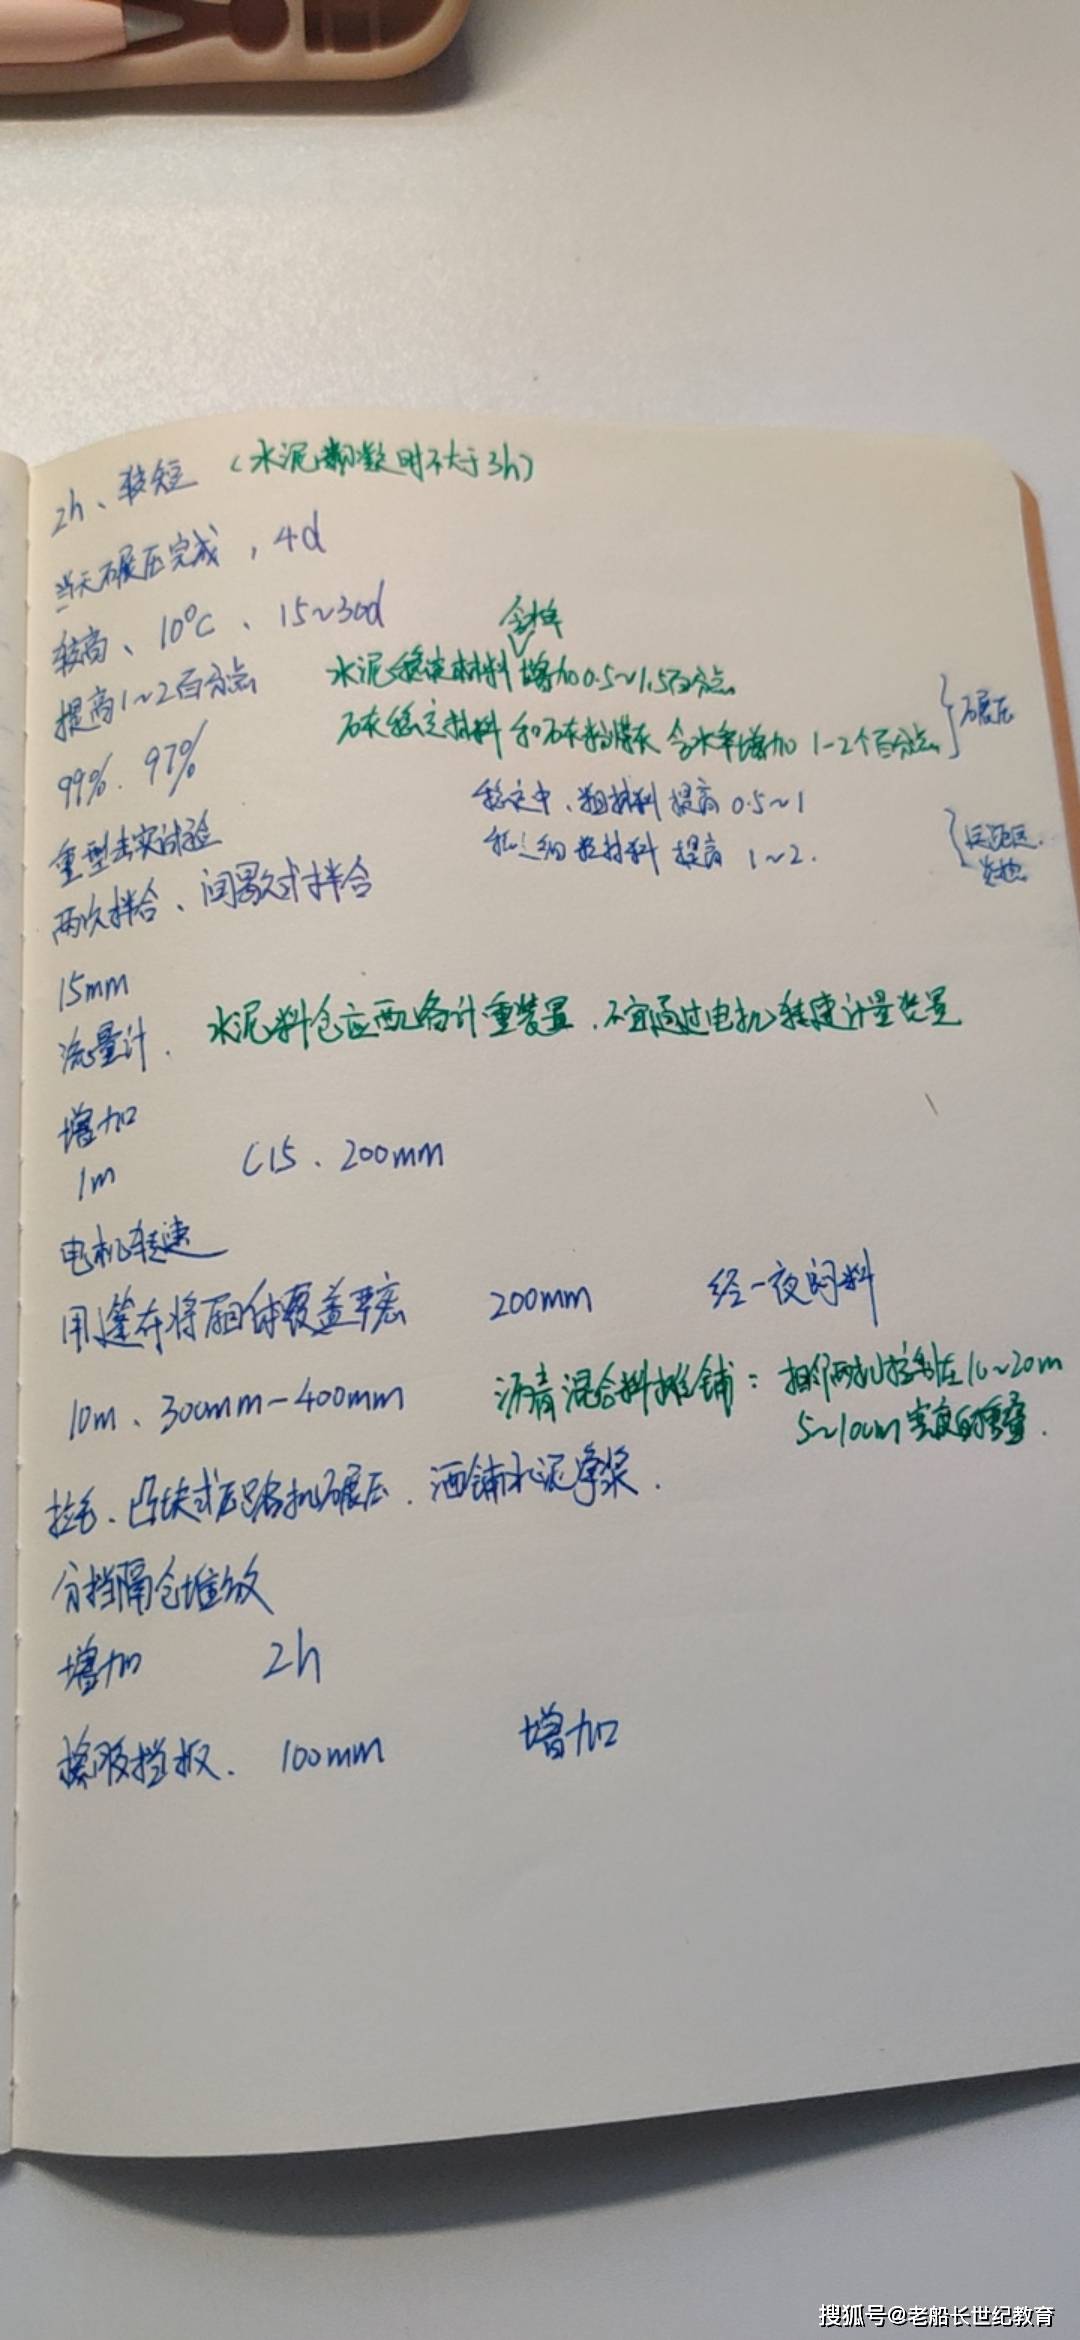 2h、较短 (水泥翻数时不大于3h)
当天碾压完成，4d
较高、10℃、15~30d
含水率
提高1~2百分点 水泥稳定材料增加0.5~1.5百分点
石灰稳定材料和石灰粉煤灰含水率增加1-2个百分点 碾压
99%.97%
稳定中、粗材料提高0.5~1
重型击实试验
稳定细粒材料提高1~2.
两次拌合、间歇式拌合
15mm
流量计. 水泥料仓应配备计重装置.不宜通过电机转速计量装置
增加
1m C15、200mm
电机转速
用篷布将厢体覆盖严密 200mm 经一夜闷料
10m、300mm-400mm 沥青混合料摊铺：相邻两机控制在10~20m
5~10cm宽度的重叠.
拉毛、凸块式压路机碾压.洒铺水泥净浆.
分挡隔仓堆放
增加 2h
橡胶挡板. 100mm 增加
搜狐号@老船长世纪教育